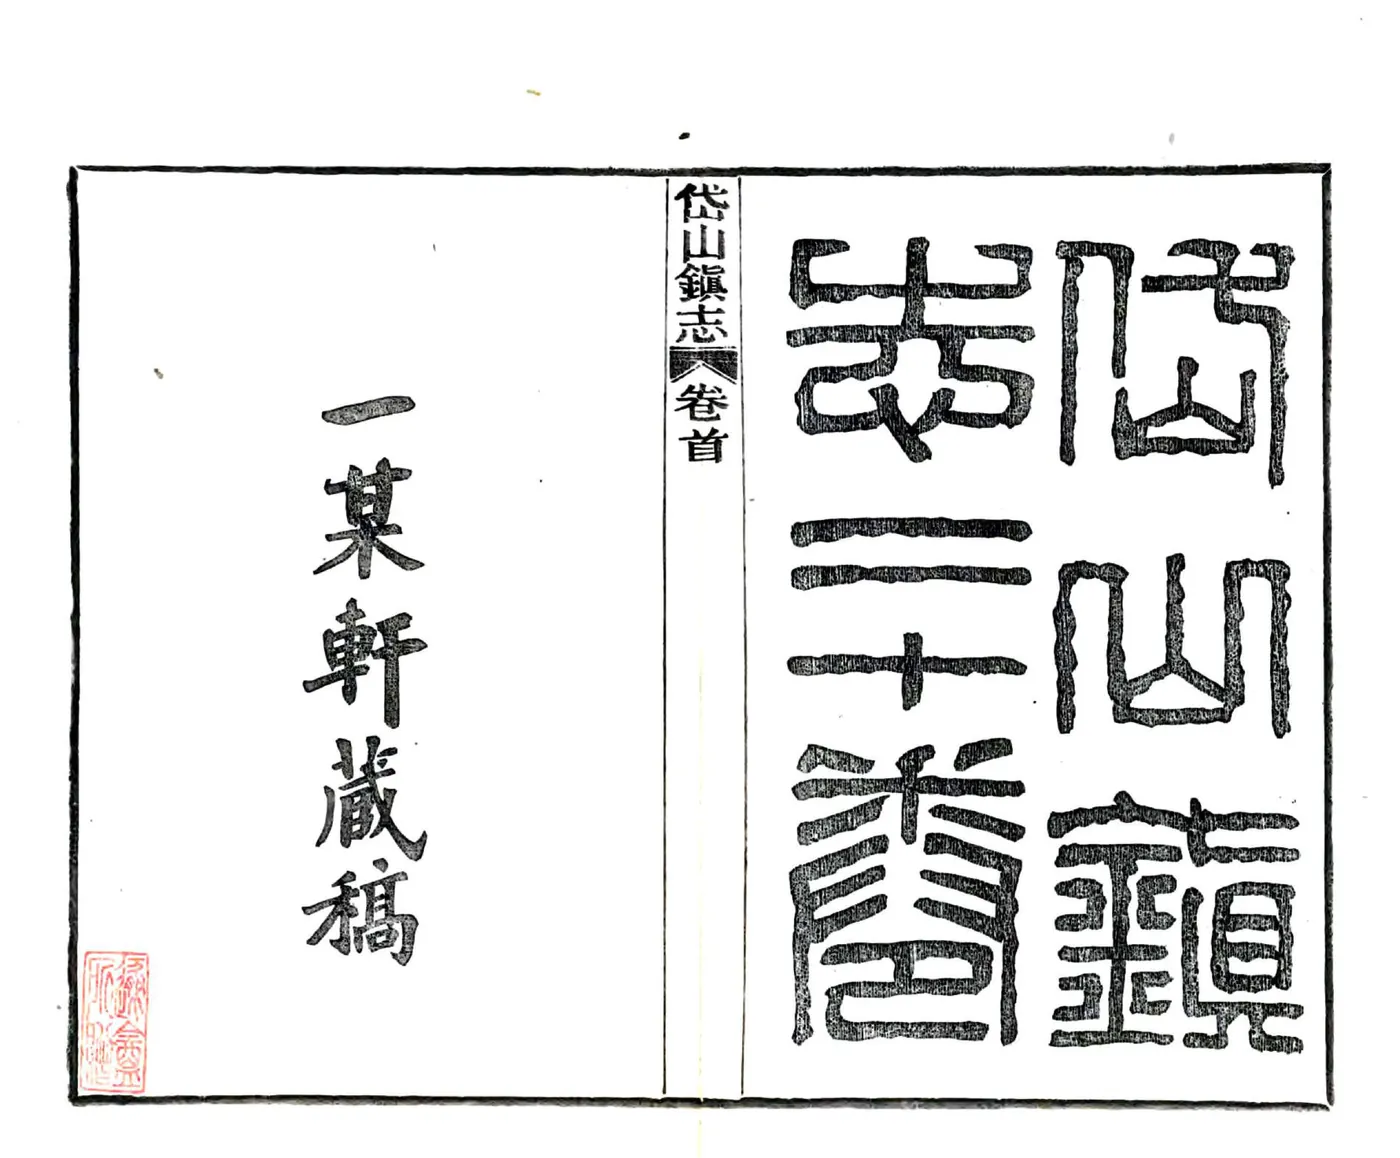 岱山鎮
志二十卷
岱山鎮志 卷首
一某軒藏稿